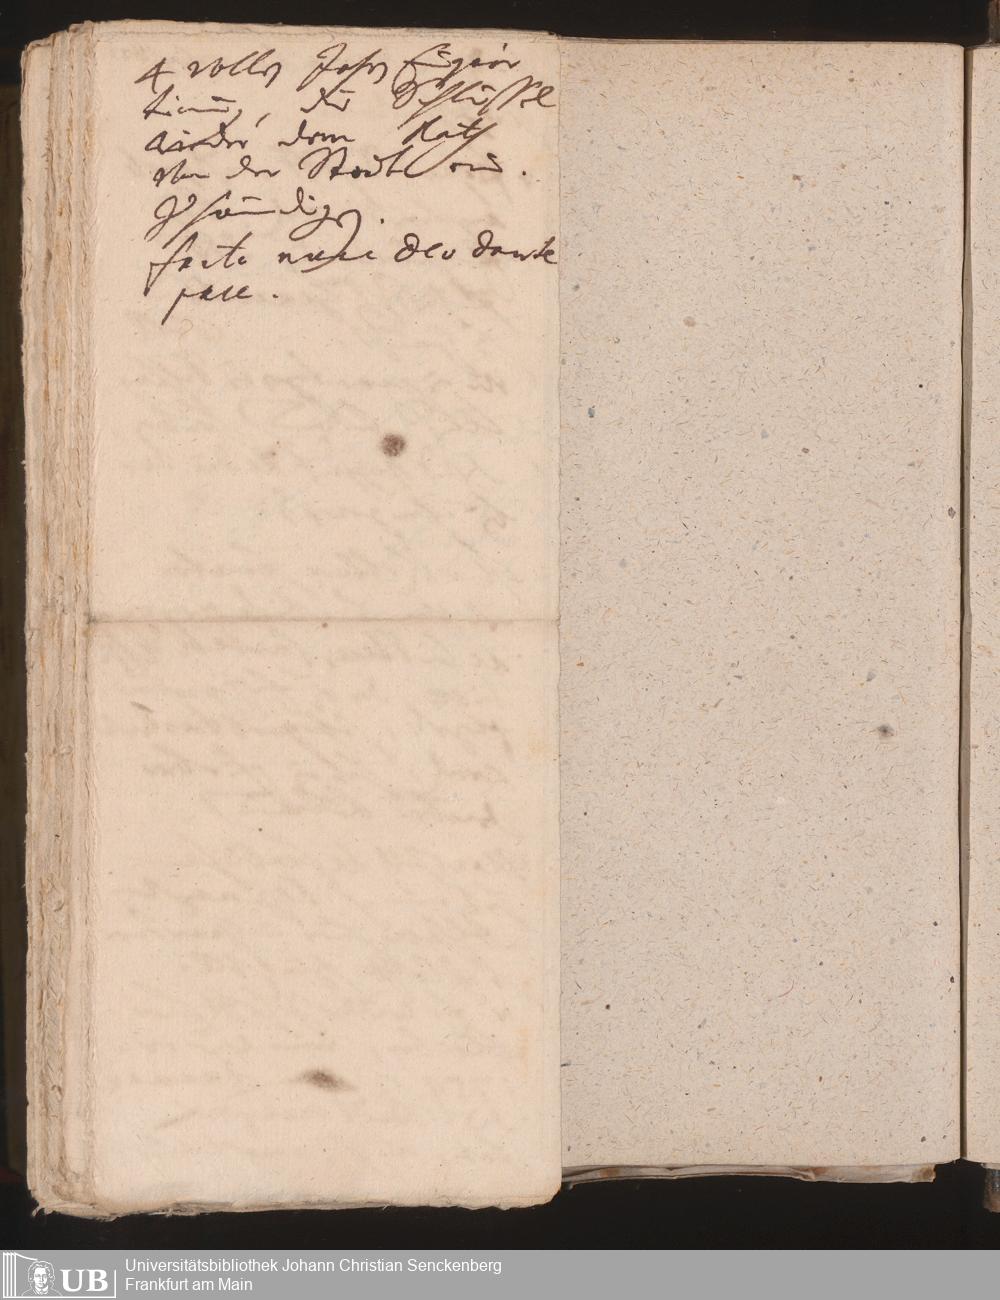 4 volle Jahr hieher
die Schlüssel
wieder dem Rath
von der Stadt ein.
händigen.
facti nunc deo dante
pace.
UB
Universitätsbibliothek Johann Christian Senckenberg
Frankfurt am Main